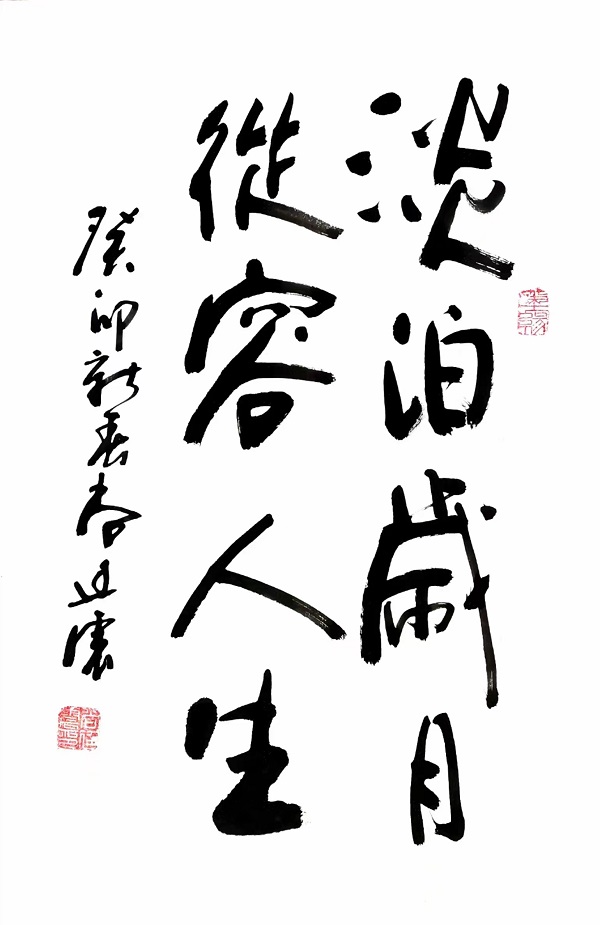 淡泊歲月
從容人生
癸卯新春尚廷